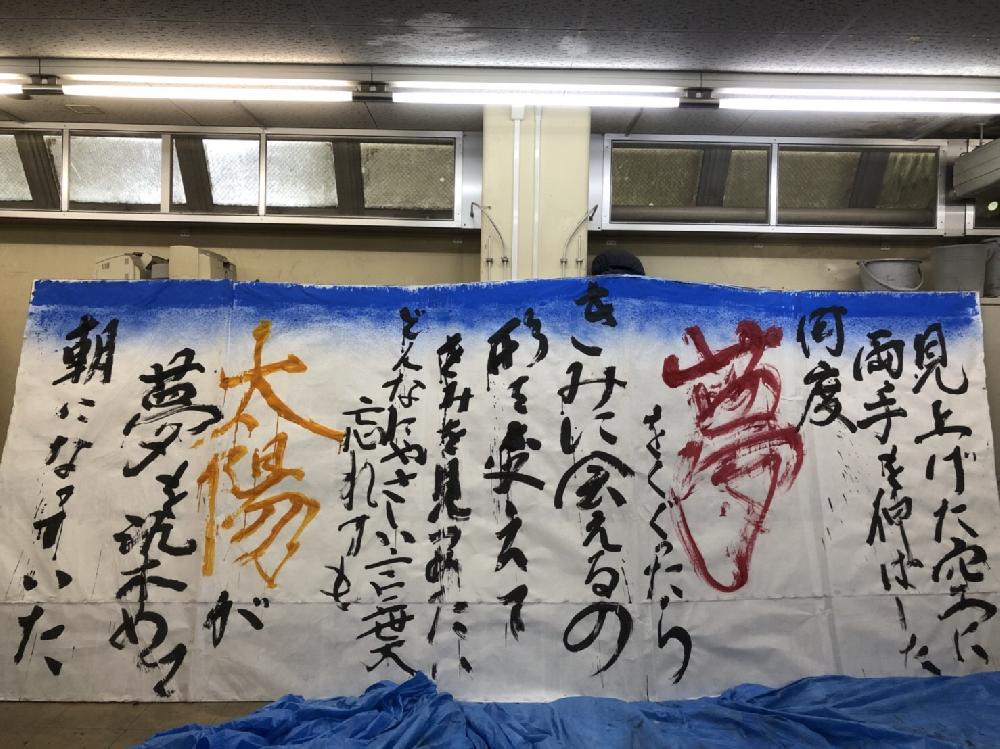 見上げた空に
両手を伸ばした
何度
夢
をくぐったら
きみに会えるの
形を変えて
きみを見つ
どんなにやさしい言葉
忘れても
太陽
が
夢も染めて
朝になっていた